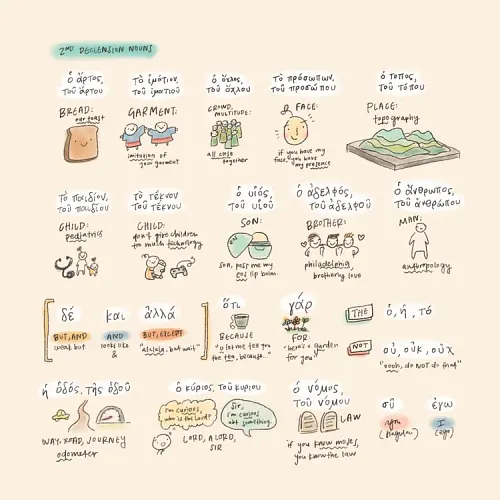 2ND DECLENSION NOUNS
ὁ ἄρτος,
τοῦ ἄρτου
BREAD:
our toast
τὸ ἱμάτιον,
τοῦ ἱματιοῦ
GARMENT:
imitation of
your garment
ὁ ὄχλος,
τοῦ ὄχλου
CROWD,
MULTITUDE:
all close
together
τὸ πρόσωπων,
τοῦ προσώπου
FACE:
if you have my
face, you have
my presence
ὁ τοπος,
τοῦ τόπου
PLACE:
topography
τὸ παιδίον,
τοῦ παιδίου
CHILD:
pediatrics
τὸ τέκνον
τοῦ τέκνου
CHILD:
don't give children
too much technology
ὁ υἱός,
τοῦ υἱοῦ
SON:
son, pass me my
eos lip balm
ὁ ἀδελφός,
τοῦ ἀδελφοῦ
BROTHER:
philadelphia,
brotherly love
ὁ ἄνθρωπος,
τοῦ ἀνθρώπου
MAN:
anthropology
δέ
BUT, AND
weak but
και
AND
looks like
&
ἀλλά
BUT, EXCEPT
"alalala. but wait"
ὅτι
BECAUSE
the tea, because.."
γάρ
FOR
"here's a garden
for you"
THE
ὁ, ἡ, τό
NOT
οὐ, οὐκ, οὐχ
"oooh, do NOT do that"
ἡ ὁδός, τῆς ὁδοῦ
WAY, ROAD, JOURNEY
odometer
ὁ κύριος, τοῦ κυριου
I'm curious,
who is the Lord?
Sir,
I'm curious
abt something.
LORD, A LORD,
SIR
ὁ νόμος,
τοῦ νόμου
LAW
if you know moses,
you know the law
σῦ
you
(singular)
ἐγω
I
(ego)